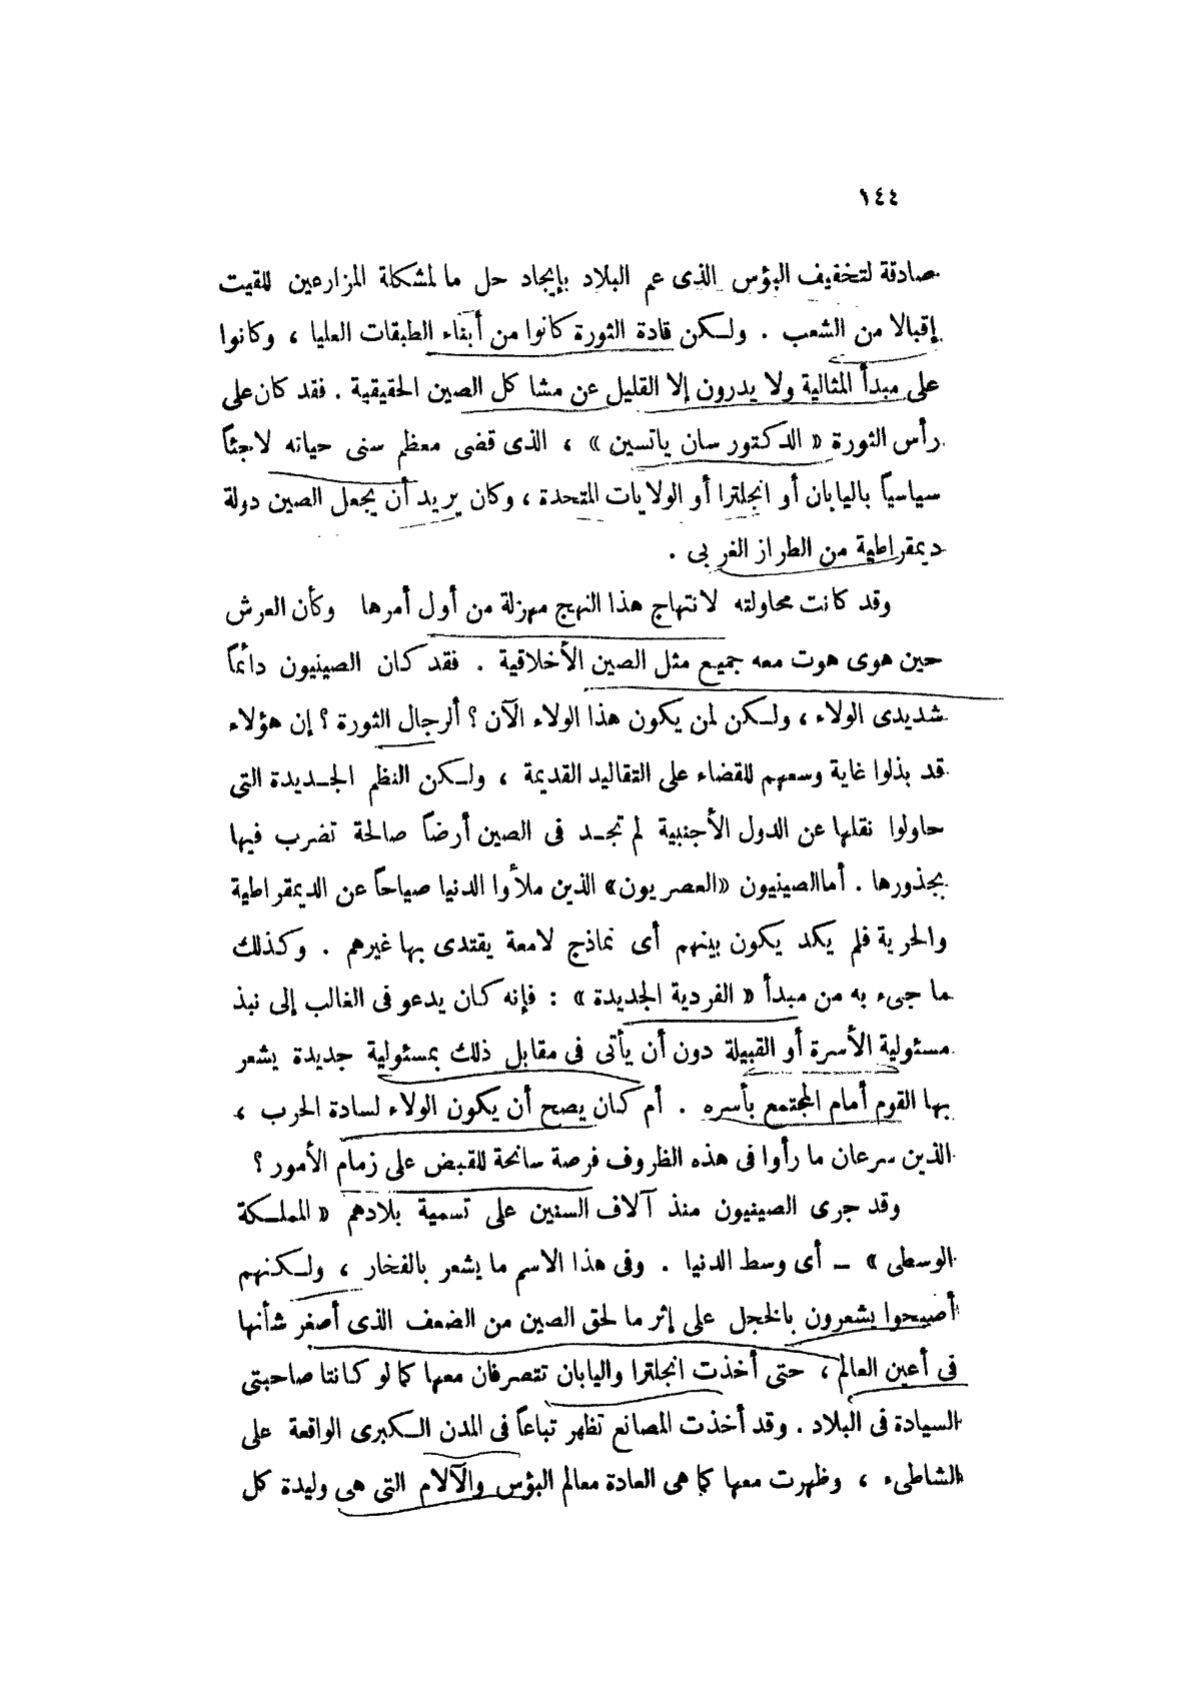 ١٤٤
صادقة لتخفيف البؤس الذى عم البلاد بإيجاد حل ما لمشكلة المزارعين للقيت
إقبالا من الشعب . ولكن قادة الثورة كانوا من أبناء الطبقات العليا ، وكانوا
على مبدأ المثالية ولا يدرون إلا القليل عن مشاكل الصين الحقيقية . فقد كان على
رأس الثورة « الدكتور سان ياتسين » ، الذى قضى معظم سنى حياته لاجئاً
سياسياً باليابان أو انجلترا أو الولايات المتحدة ، وكان يريد أن يجعل الصين دولة
ديمقراطية من الطراز الغربى .
وقد كانت محاولته لانتهاج هذا النهج مهزلة من أول أمرها وكأن العرش
حين هوى هوت معه جميع مثل الصين الأخلاقية . فقد كان الصينيون دائماً
شديدى الولاء ، ولكن لمن يكون هذا الولاء الآن ؟ ألرجال الثورة ؟ إن هؤلاء
قد بذلوا غاية وسعهم للقضاء على التقاليد القديمة ، ولكن النظم الجديدة التى
حاولوا نقلها عن الدول الأجنبية لم تجد فى الصين أرضاً صالحة تضرب فيها
بجذورها . أما الصينيون «العصريون» الذين ملأوا الدنيا صياحاً عن الديمقراطية
والحرية فلم يكد يكون بينهم أى نماذج لامعة يقتدى بها غيرهم . وكذلك
ما جىء به من مبدأ « الفردية الجديدة » : فإنه كان يدعو فى الغالب إلى نبذ
مسئولية الأسرة أو القبيلة دون أن يأتى فى مقابل ذلك بمسئولية جديدة يشعر
بها القوم أمام المجتمع بأسره . أم كان يصح أن يكون الولاء لسادة الحرب ،
الذين سرعان ما رأوا فى هذه الظروف فرصة سانحة للقبض على زمام الأمور ؟
وقد جرى الصينيون منذ آلاف السنين على تسمية بلادهم « المملكة
الوسطى » – أى وسط الدنيا . وفى هذا الاسم ما يشعر بالفخار ، ولكنهم
أصبحوا يشعرون بالخجل على إثر ما لحق الصين من الضعف الذى أصغر شأنها
فى أعين العالم ، حتى أخذت انجلترا واليابان تتصرفان معها كما لو كانتا صاحبتى
السيادة فى البلاد . وقد أخذت المصانع تظهر تباعاً فى المدن الكبرى الواقعة على
الشاطىء ، وظهرت معها كما هى العادة معالم البؤس والآلام التى هى وليدة كل